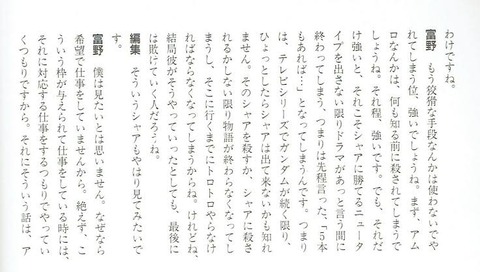 わけですね。
富野　もう狡猾な手段なんかは使わないでや
れてしまう位、強いでしょうね。まず、アム
ロなんかは、何も知る前に殺されてしまうで
しょうね。それ程、強いです。でも、それだ
け強いと、それこそシャアに勝てるニュータ
イプを出さない限りドラマがあっと言う間に
終わってしまう、つまりは先程言った、「5本
もあれば…」となってしまうんです。つまり
は、テレビシリーズでガンダムが続く限り、
ひょっとしたらシャアは出て来ないかも知れ
ません。そのシャアを殺すか、シャアに殺さ
れるかしない限り物語が終わらなくなってし
まうし、そこに行くまでにトロトロやらなけ
ればならなくなってしまうからね。けれどね、
結局彼がそうやっていったとしても、最後に
は敗けていく人だろうね。
編集　そういうシャアもやはり見てみたいで
す。
富野　僕は見たいとは思いません。なぜなら
希望で仕事をしていませんから、絶えず、こ
ういう枠が与えられて仕事をしている時には、
それに対応する仕事をするつもりでやってい
くつもりですから。それにそういう話は、ア